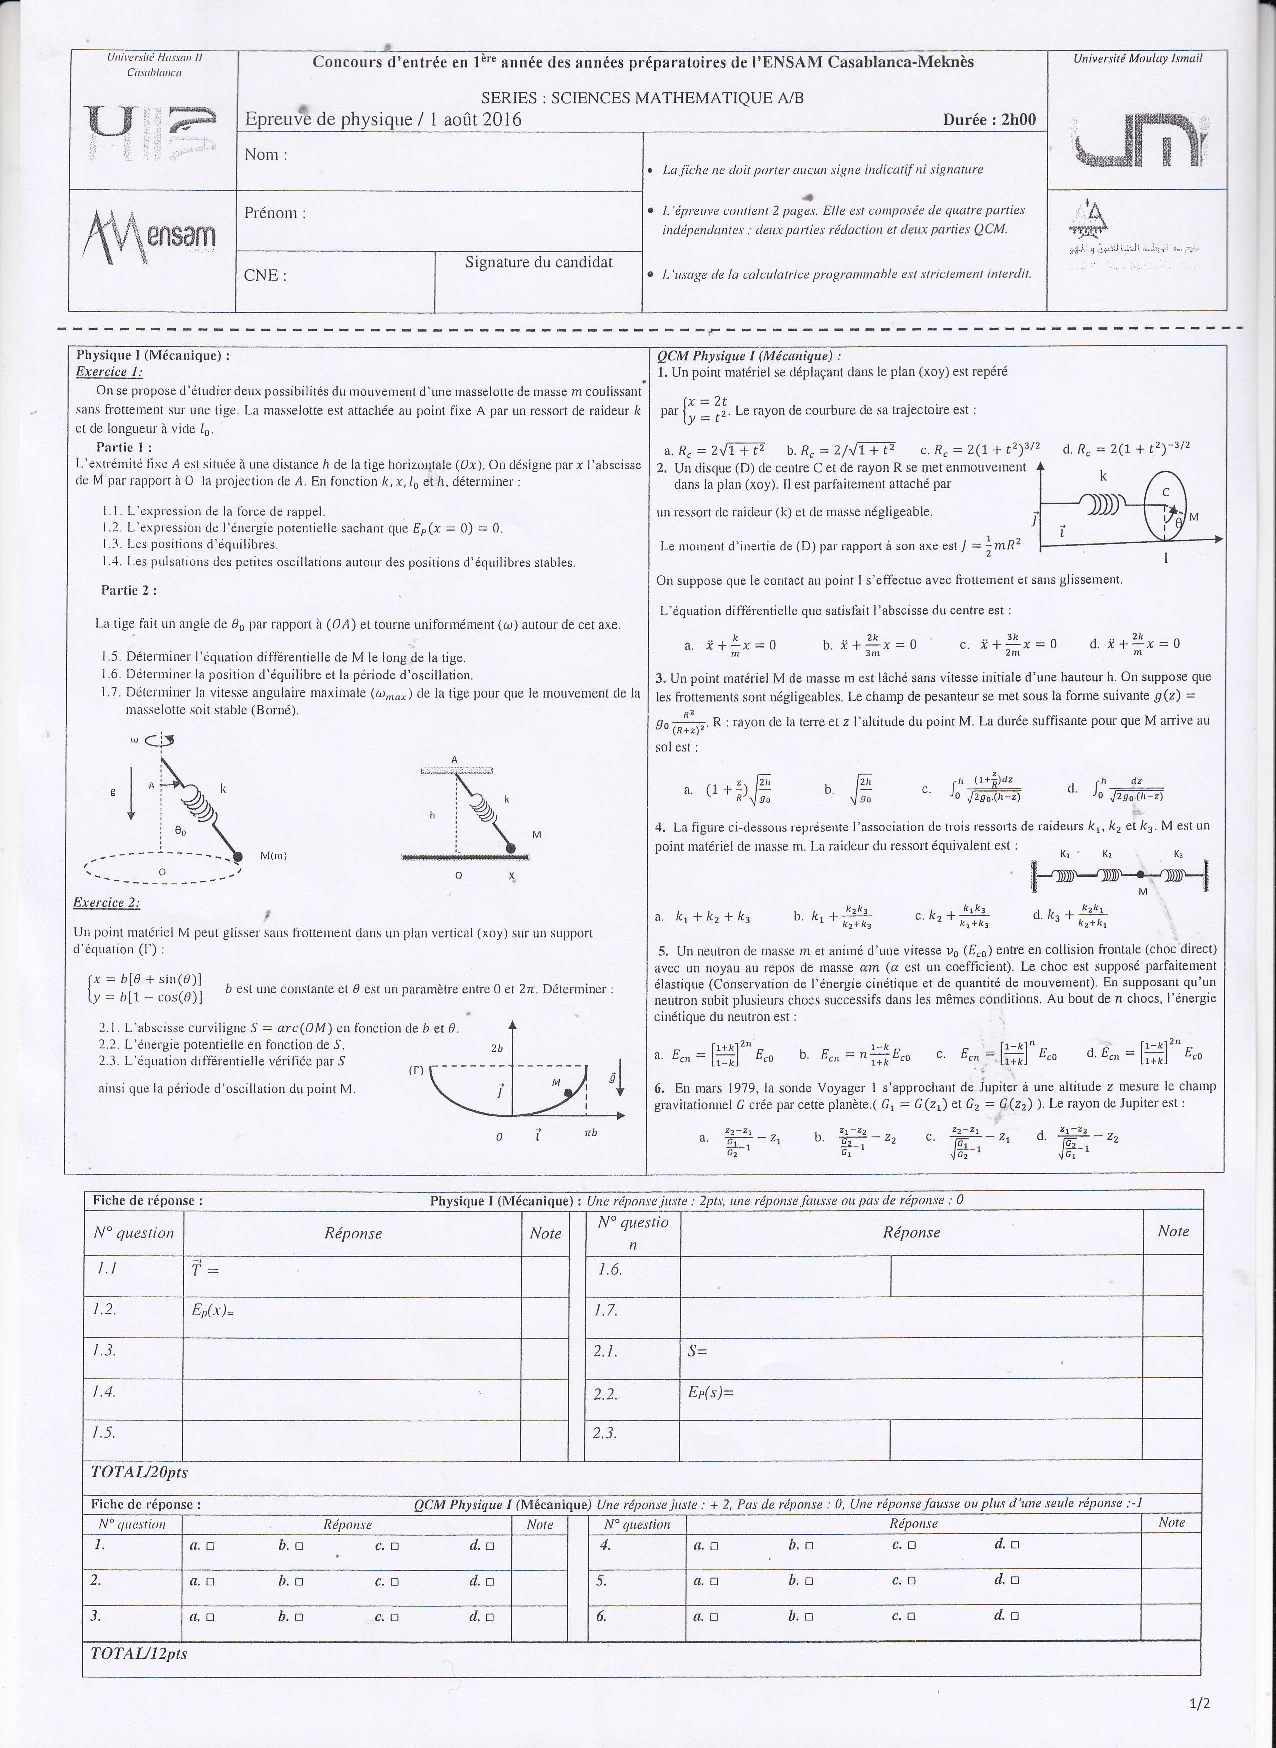 Université Hassan II
Casablanca
Concours d'entrée en 1ère année des années préparatoires de l'ENSAM Casablanca-Meknès
SERIES : SCIENCES MATHEMATIQUE A/B
Epreuve de physique / 1 août 2016 Durée : 2h00
Université Moulay Ismail
Nom :
Prénom :
CNE :
Signature du candidat
• La fiche ne doit porter aucun signe indicatif ni signature
• L'épreuve contient 2 pages. Elle est composée de quatre parties
indépendantes : deux parties rédaction et deux parties QCM.
• L'usage de la calculatrice programmable est strictement interdit.
ensam
Physique I (Mécanique) :
Exercice 1:
On se propose d'étudier deux possibilités du mouvement d'une masselotte de masse m coulissant
sans frottement sur une tige. La masselotte est attachée au point fixe A par un ressort de raideur k
et de longueur à vide l₀.
Partie 1 :
L'extrémité fixe A est située à une distance h de la tige horizontale (Ox). On désigne par x l'abscisse
de M par rapport à O la projection de A. En fonction k, x, l₀ et h, déterminer :
1.1. L'expression de la force de rappel.
1.2. L'expression de l'énergie potentielle sachant que E_P(x = 0) = 0.
1.3. Les positions d'équilibres.
1.4. Les pulsations des petites oscillations autour des positions d'équilibres stables.
Partie 2 :
La tige fait un angle de θ₀ par rapport à (OA) et tourne uniformément (ω) autour de cet axe.
1.5. Déterminer l'équation différentielle de M le long de la tige.
1.6. Déterminer la position d'équilibre et la période d'oscillation.
1.7. Déterminer la vitesse angulaire maximale (ω_max) de la tige pour que le mouvement de la
masselotte soit stable (Borné).
ω
g
A
k
θ₀
M(m)
O
A
h
k
M
O x
Exercice 2:
Un point matériel M peut glisser sans frottement dans un plan vertical (xoy) sur un support
d'équation (Γ) :
{x = b[θ + sin(θ)]
{y = b[1 − cos(θ)] b est une constante et θ est un paramètre entre 0 et 2π. Déterminer :
2.1. L'abscisse curviligne S = arc(OM) en fonction de b et θ.
2.2. L'énergie potentielle en fonction de S.
2.3. L'équation différentielle vérifiée par S
ainsi que la période d'oscillation du point M.
2b
(Γ)
j
M
g
o i πb
QCM Physique I (Mécanique) :
1. Un point matériel se déplaçant dans le plan (xoy) est repéré
par {x = 2t, y = t². Le rayon de courbure de sa trajectoire est :
a. R_c = 2√(1 + t²) b. R_c = 2/√(1 + t²) c. R_c = 2(1 + t²)^3/2 d. R_c = 2(1 + t²)^−3/2
2. Un disque (D) de centre C et de rayon R se met enmouvement
dans la plan (xoy). Il est parfaitement attaché par
un ressort de raideur (k) et de masse négligeable.
Le moment d'inertie de (D) par rapport à son axe est J = 1/2 mR²
k
C
θ
M
j
i
I
On suppose que le contact au point I s'effectue avec frottement et sans glissement.
L'équation différentielle que satisfait l'abscisse du centre est :
a. ẍ + k/m x = 0 b. ẍ + 2k/3m x = 0 c. ẍ + 3k/2m x = 0 d. ẍ + 2k/m x = 0
3. Un point matériel M de masse m est lâché sans vitesse initiale d'une hauteur h. On suppose que
les frottements sont négligeables. Le champ de pesanteur se met sous la forme suivante g(z) =
g₀ R²/(R+z)². R : rayon de la terre et z l'altitude du point M. La durée suffisante pour que M arrive au
sol est :
a. (1 + z/R)√(2h/g₀) b. √(2h/g₀) c. ∫₀^h (1+z/R)dz/√(2g₀.(h−z)) d. ∫₀^h dz/√(2g₀.(h−z))
4. La figure ci-dessous représente l'association de trois ressorts de raideurs k₁, k₂ et k₃. M est un
point matériel de masse m. La raideur du ressort équivalent est :
K₁ K₂ K₃
M
a. k₁ + k₂ + k₃ b. k₁ + k₂k₃/(k₂+k₃) c. k₂ + k₁k₃/(k₁+k₃) d. k₃ + k₂k₁/(k₂+k₁)
5. Un neutron de masse m et animé d'une vitesse v₀ (E_c0) entre en collision frontale (choc direct)
avec un noyau au repos de masse αm (α est un coefficient). Le choc est supposé parfaitement
élastique (Conservation de l'énergie cinétique et de quantité de mouvement). En supposant qu'un
neutron subit plusieurs chocs successifs dans les mêmes conditions. Au bout de n chocs, l'énergie
cinétique du neutron est :
a. E_cn = [(1+k)/(1−k)]^2n E_c0 b. E_cn = n (1−k)/(1+k) E_c0 c. E_cn = [(1−k)/(1+k)]^n E_c0 d. E_cn = [(1−k)/(1+k)]^2n E_c0
6. En mars 1979, la sonde Voyager 1 s'approchant de Jupiter à une altitude z mesure le champ
gravitationnel G crée par cette planète.( G₁ = G(z₁) et G₂ = G(z₂) ). Le rayon de Jupiter est :
a. (z₂−z₁)/(G₁/G₂−1) − z₁ b. (z₁−z₂)/(G₂/G₁−1) − z₂ c. (z₂−z₁)/(√(G₁/G₂)−1) − z₁ d. (z₁−z₂)/(√(G₂/G₁)−1) − z₂
Fiche de réponse : Physique I (Mécanique) : Une réponse juste : 2pts, une réponse fausse ou pas de réponse : 0
N° question Réponse Note N° question Réponse Note
1.1 T⃗ = 1.6.
1.2. E_P(x)= 1.7.
1.3. 2.1. S=
1.4. 2.2. E_P(s)=
1.5. 2.3.
TOTAL/20pts
Fiche de réponse : QCM Physique I (Mécanique) Une réponse juste : + 2, Pas de réponse : 0, Une réponse fausse ou plus d'une seule réponse :-1
N° question Réponse Note N° question Réponse Note
1. a. □ b. □ c. □ d. □ 4. a. □ b. □ c. □ d. □
2. a. □ b. □ c. □ d. □ 5. a. □ b. □ c. □ d. □
3. a. □ b. □ c. □ d. □ 6. a. □ b. □ c. □ d. □
TOTAL/12pts
1/2